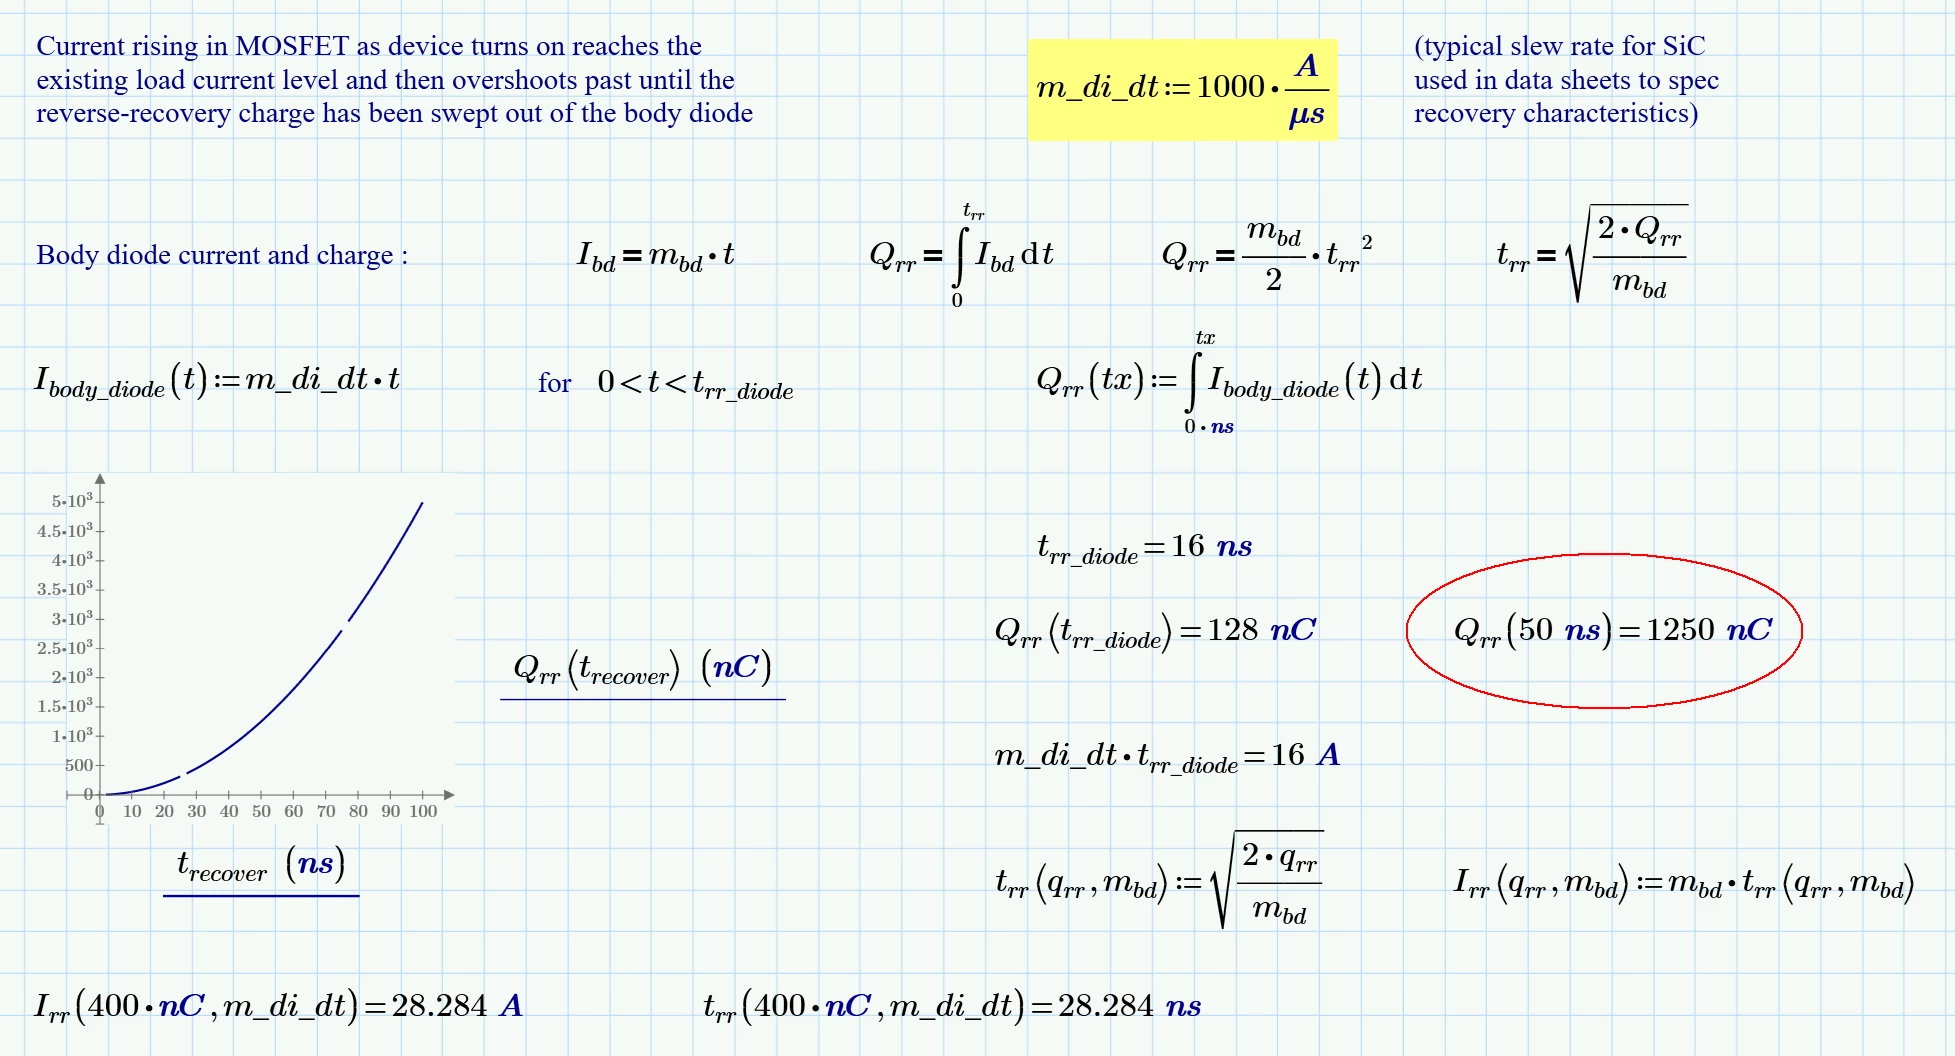 Current rising in MOSFET as device turns on reaches the
existing load current level and then overshoots past until the
reverse-recovery charge has been swept out of the body diode
m_di_dt := 1000 · A/μs
(typical slew rate for SiC
used in data sheets to spec
recovery characteristics)
Body diode current and charge :
I_bd = m_bd · t
Q_rr = ∫_0^t_rr I_bd dt
Q_rr = m_bd/2 · t_rr²
t_rr = √(2 · Q_rr / m_bd)
I_body_diode(t) := m_di_dt · t
for 0 < t < t_rr_diode
Q_rr(tx) := ∫_(0 · ns)^tx I_body_diode(t) dt
5·10³
4.5·10³
4·10³
3.5·10³
3·10³
2.5·10³
2·10³
1.5·10³
1·10³
500
0
0 10 20 30 40 50 60 70 80 90 100
Q_rr(t_recover) (nC)
t_recover (ns)
t_rr_diode = 16 ns
Q_rr(t_rr_diode) = 128 nC
Q_rr(50 ns) = 1250 nC
m_di_dt · t_rr_diode = 16 A
t_rr(q_rr, m_bd) := √(2 · q_rr / m_bd)
I_rr(q_rr, m_bd) := m_bd · t_rr(q_rr, m_bd)
I_rr(400 · nC, m_di_dt) = 28.284 A
t_rr(400 · nC, m_di_dt) = 28.284 ns